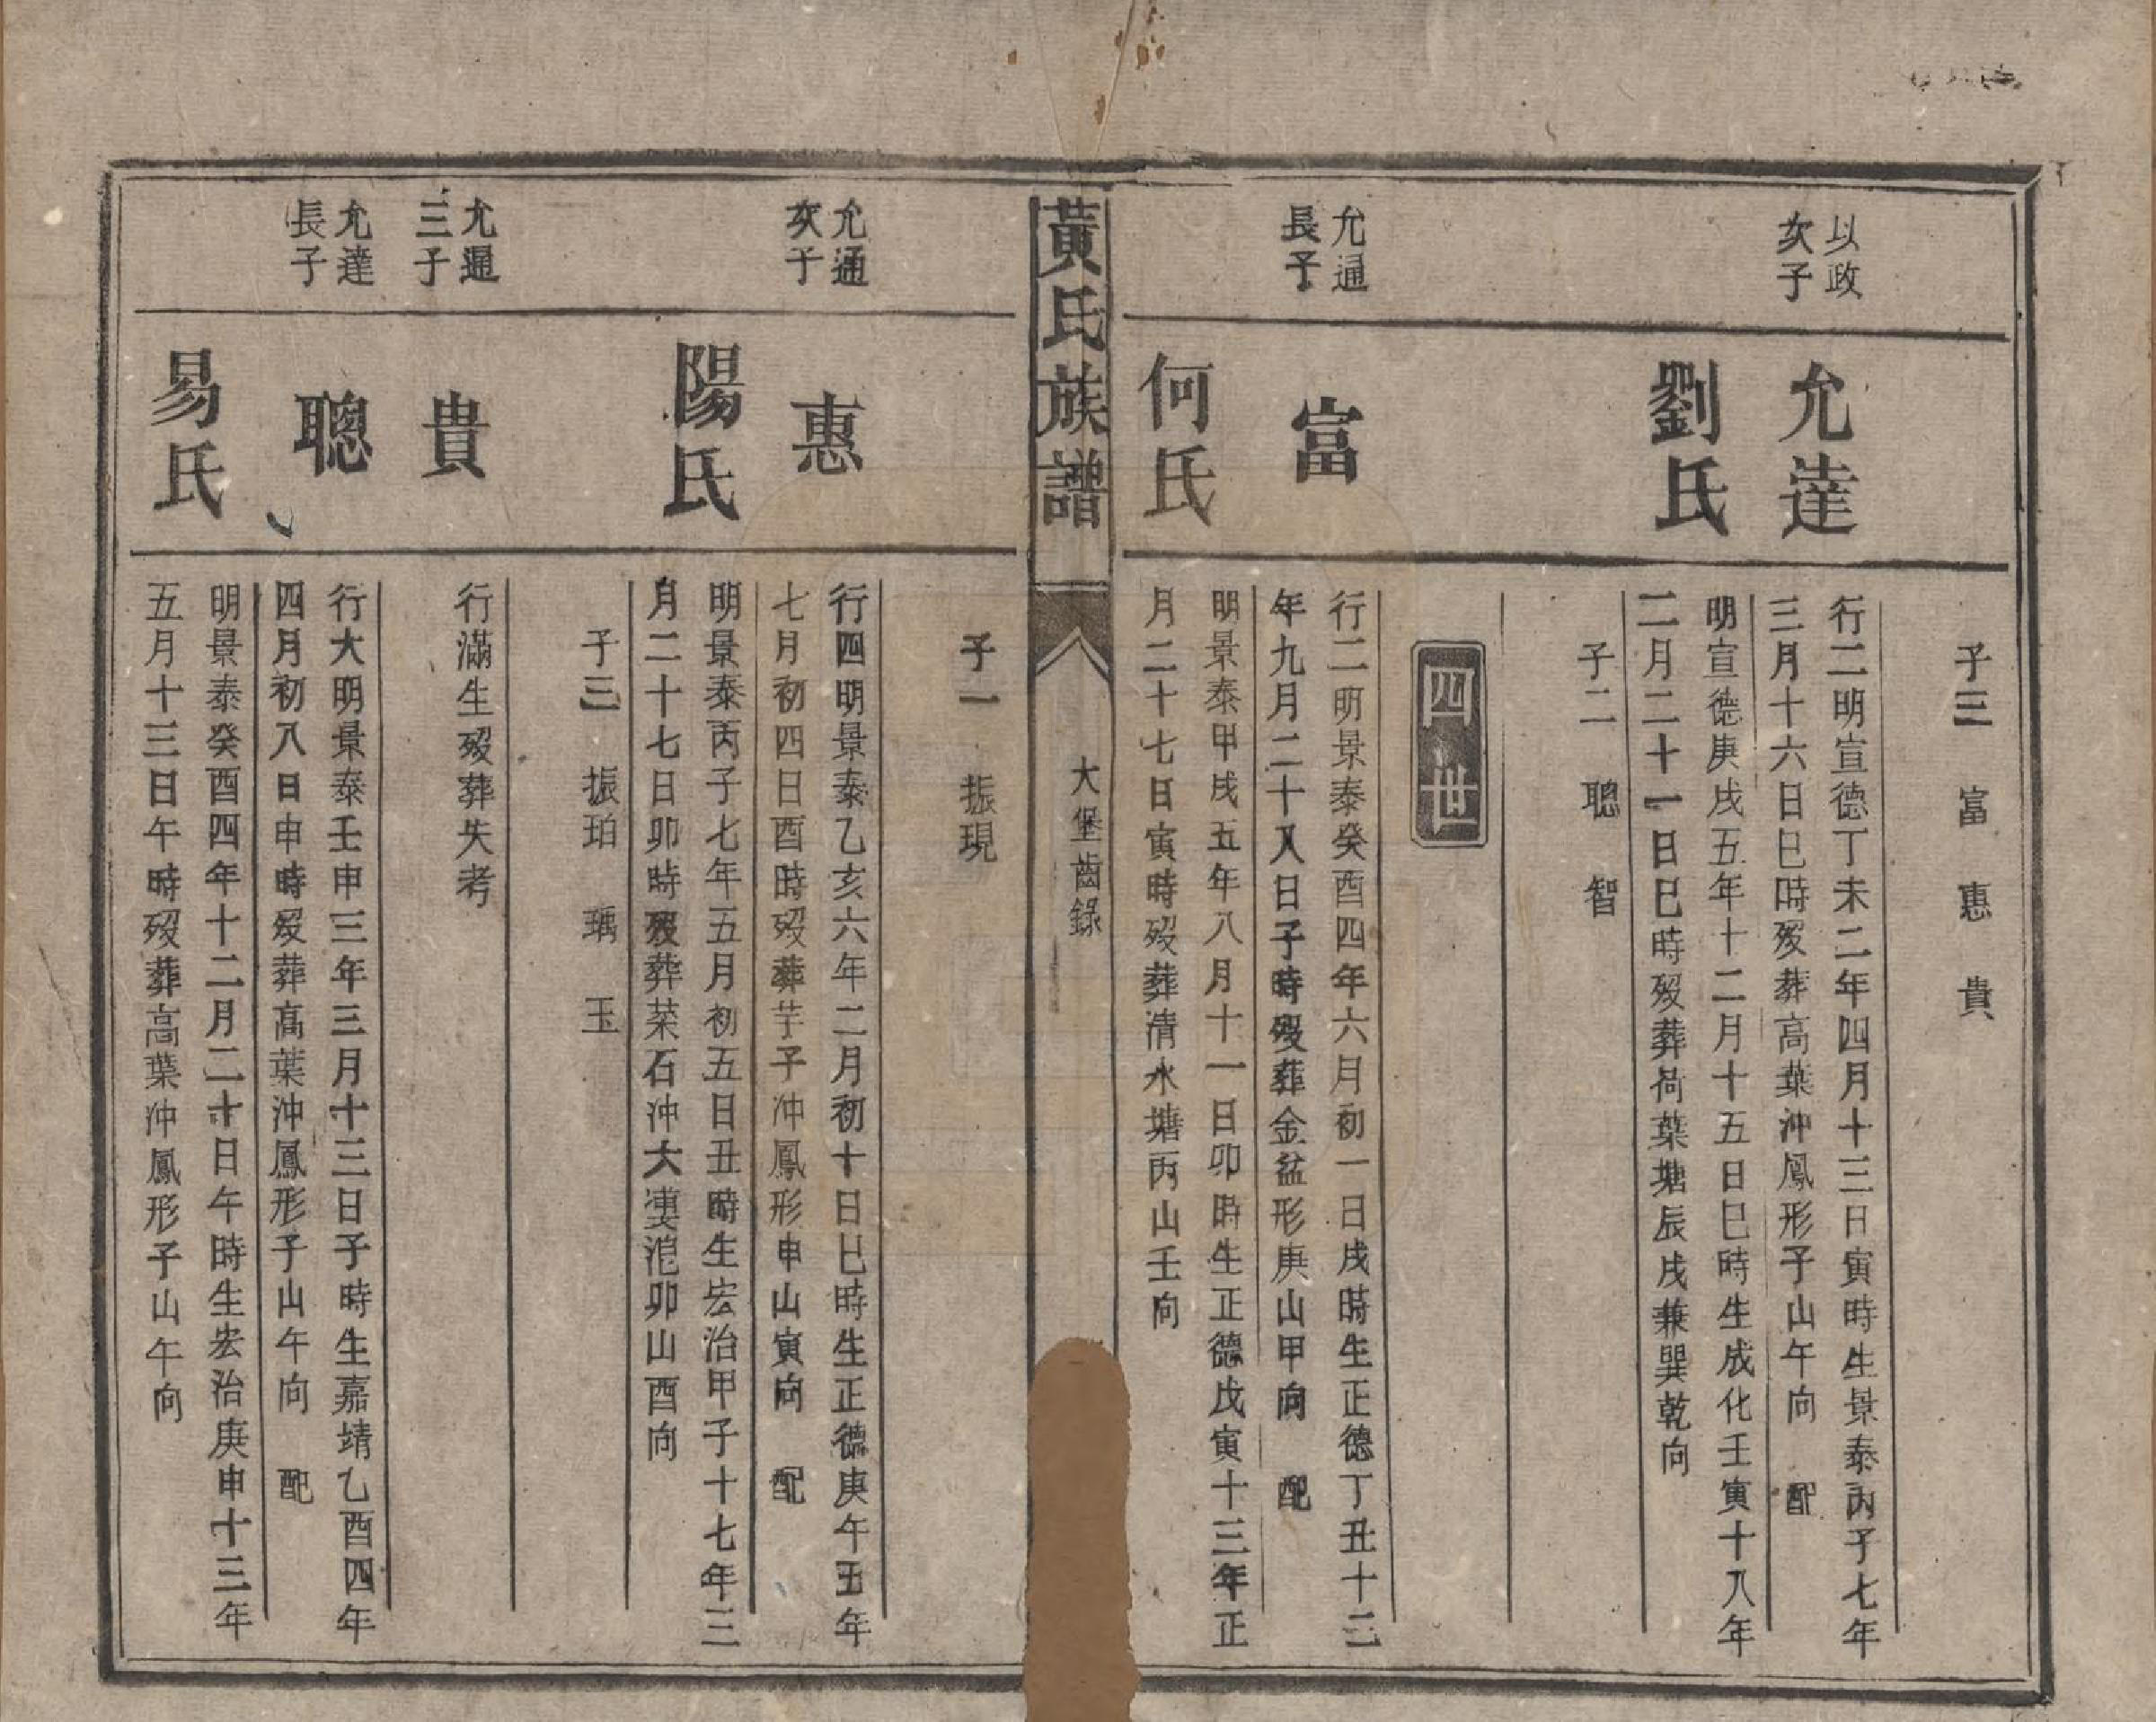 子三　富　惠　貴
以政
次子
允達
行二明宣德丁未二年四月十三日寅時生景泰丙子七年
三月十六日巳時歿葬高葉沖鳳形子山午向　配
劉氏
明宣德庚戌五年十二月十五日巳時生成化壬寅十八年
二月二十一日巳時歿葬荷葉塘辰戌兼巽乾向
子二　聰　智
四世
允通
長子
富
行二明景泰癸酉四年六月初一日戌時生正德丁丑十二
年九月二十八日子時歿葬金盆形庚山甲向　配
何氏
明景泰甲戌五年八月十一日卯時生正德戊寅十三年正
月二十七日寅時歿葬清水塘丙山壬向
黃氏族譜
大堡齒錄
子一　振現
允通
次子
惠
行四明景泰乙亥六年二月初十日巳時生正德庚午五年
七月初四日酉時歿葬芋子沖鳳形申山寅向　配
陽氏
明景泰丙子七年五月初五日丑時生宏治甲子十七年三
月二十七日卯時歿葬菜石沖大漊沱卯山酉向
子三　振珀　瑀　玉
允通
三子
貴
行滿生歿葬失考
允達
長子
聰
行大明景泰壬申三年三月十三日子時生嘉靖乙酉四年
四月初八日申時歿葬高葉沖鳳形子山午向　配
易氏
明景泰癸酉四年十二月二十日午時生宏治庚申十三年
五月十三日午時歿葬高葉沖鳳形子山午向